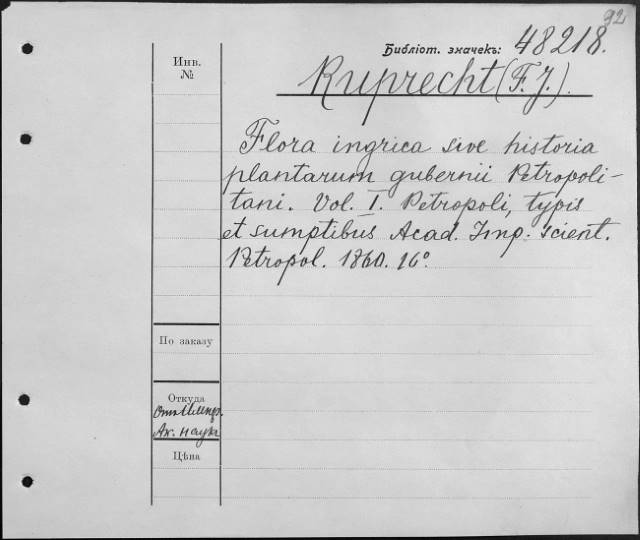 92
Библіот. значекъ: 48218.
Инв.
№
Ruprecht (F. J.).
Flora ingrica sive historia
plantarum gubernii Petropoli-
tani. Vol. I. Petropoli, typis
et sumptibus Acad. Imp. scient.
Petropol. 1860. 16°
По заказу
Откуда
Отъ Импр.
Ак. наукъ
Цѣна